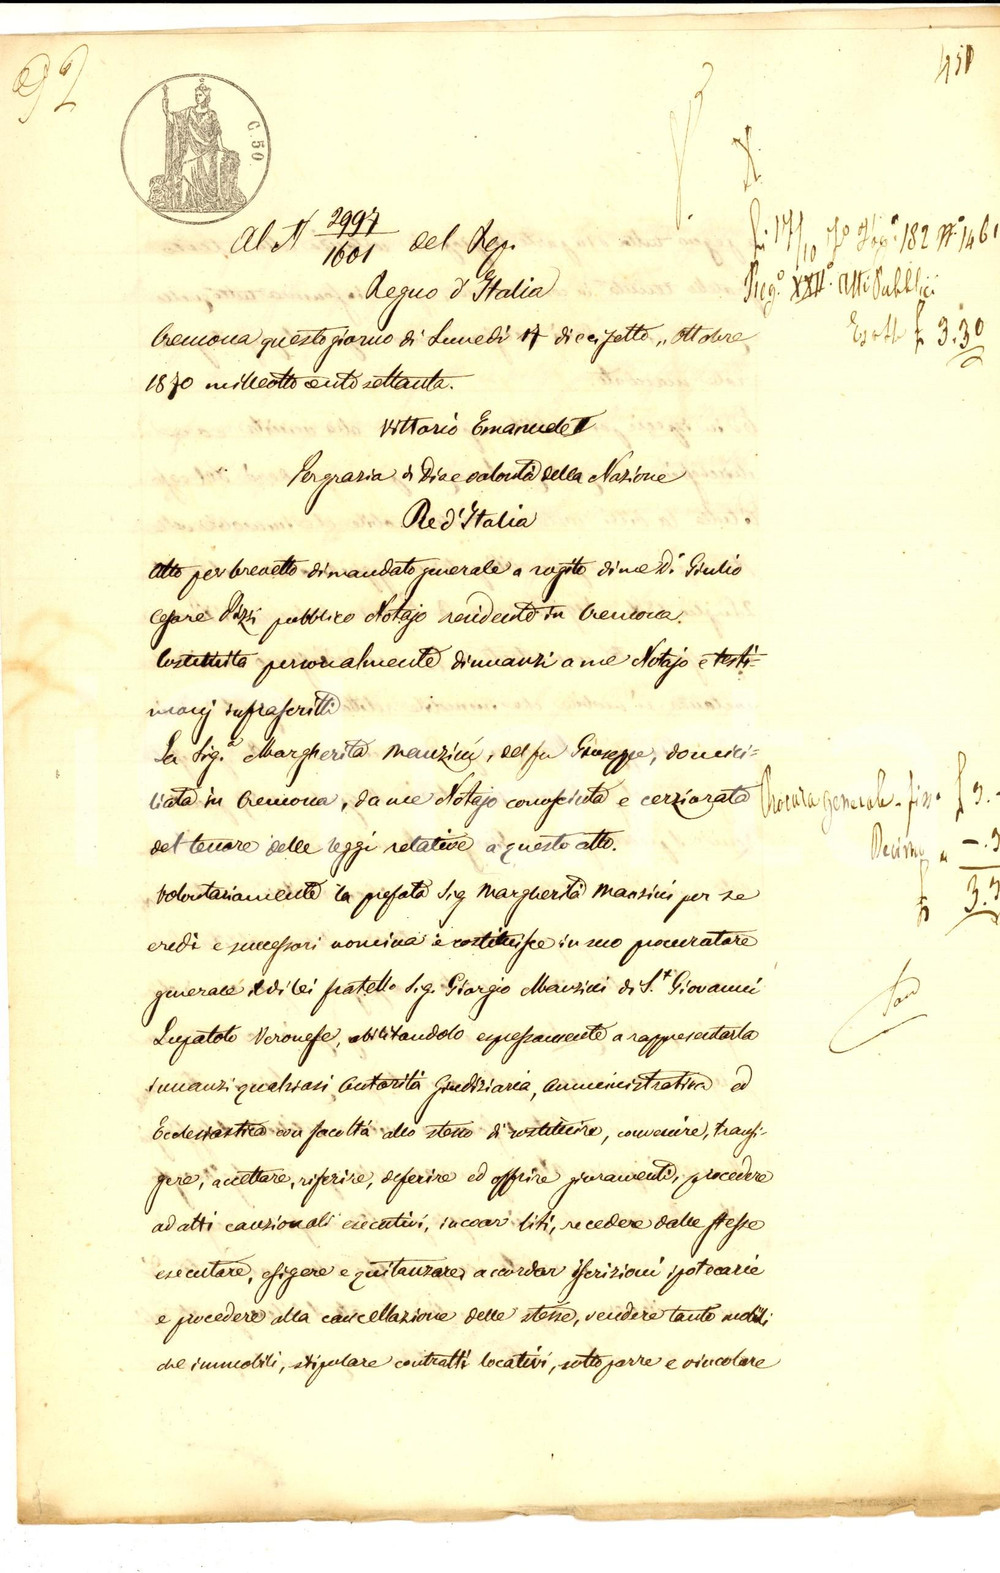 92
451
C. 50
Al N 2997/1601 del Rep.
Regno d'Italia
Cremona questo giorno di Lunedì 17 diecisette „ Ottobre
1870 milleottocentosettanta.
Vittorio Emanuele II
Per grazia di Dio e volontà della Nazione
Re d'Italia
Atto per brevetto di mandato generale a rogito di me Dr Giulio
Cesare Rizzi pubblico Notajo residente in Cremona.
Costituita personalmente dinnanzi a me Notajo e testi=
monj infrascritti
La Sig.a Margherita Manzini, del fu Giuseppe, domici=
liata in Cremona, da me Notajo conosciuta e cerziorata
del tenore delle leggi relative a questo atto.
Volontariamente la prefata Sig Margherita Manzini per se
eredi e successori nomina e costituisce in suo procuratore
generale il di lei fratello Sig. Giorgio Manzini di S.t Giovanni
Lupatoto Veronese, abilitandolo espressamente a rappresentarla
innanzi qualsiasi Autorità Giudiziaria, Amministrativa ed
Ecclesiastica con facoltà allo stesso di sostituire, convenire, transi-
gere, accettare, riferire, deferire ed offrire giuramenti, procedere
ad atti cauzionali esecutivi, incoar liti, recedere dalle stesse
esecutare, esigere e quitanzare, accordar iscrizioni ipotecarie
e procedere alla cancellazione delle stesse, vendere tanto mobili
che immobili, stipulare contratti locativi, sottoporre e vincolare
182 N° 1461
Reg.° XXII° Atti Pubblici
Esatte £ 3.30
Procura generale - fisso £ 3.-
Decimo
£ 3.3